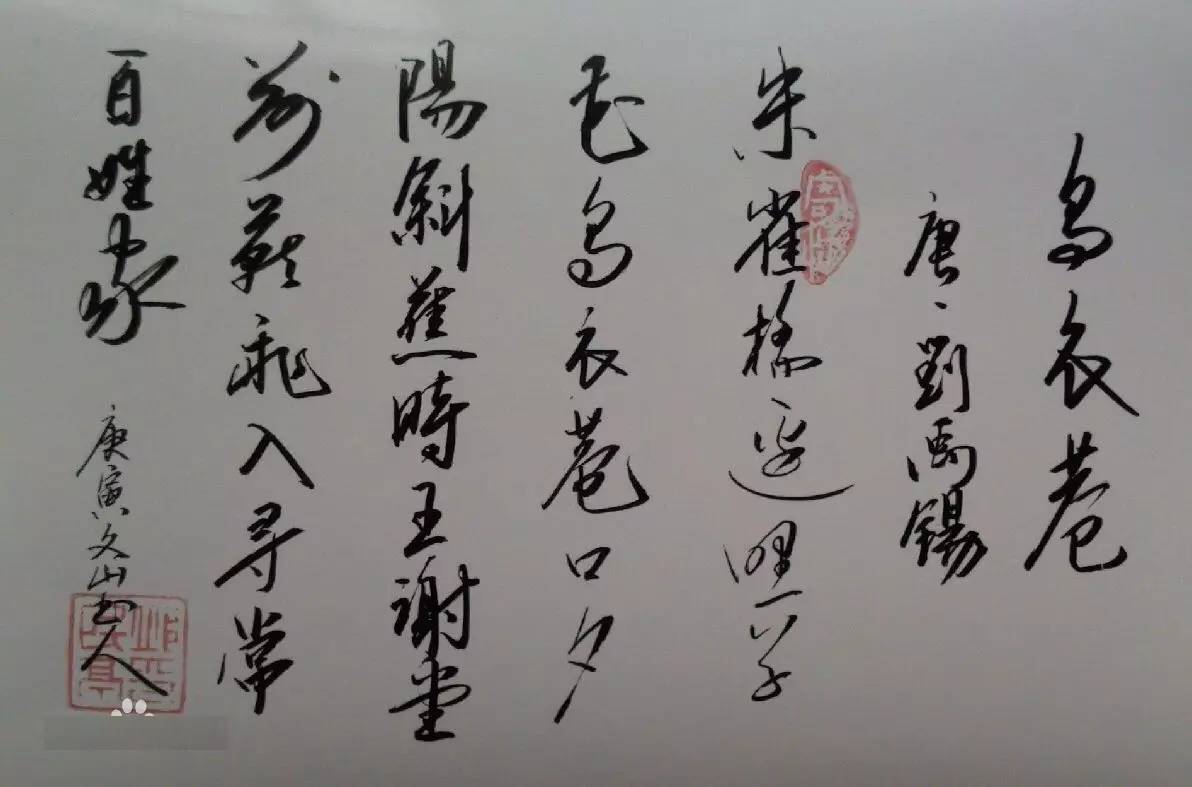 烏衣巷
唐、劉禹錫
朱雀橋邊野草
花烏衣巷口夕
陽斜舊時王謝堂
前燕飛入寻常
百姓家 庚寅文山书人